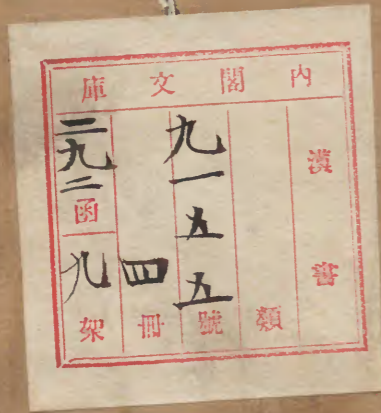 内閣文庫
漢書
類
九一五五號
四冊
二九二函
九架